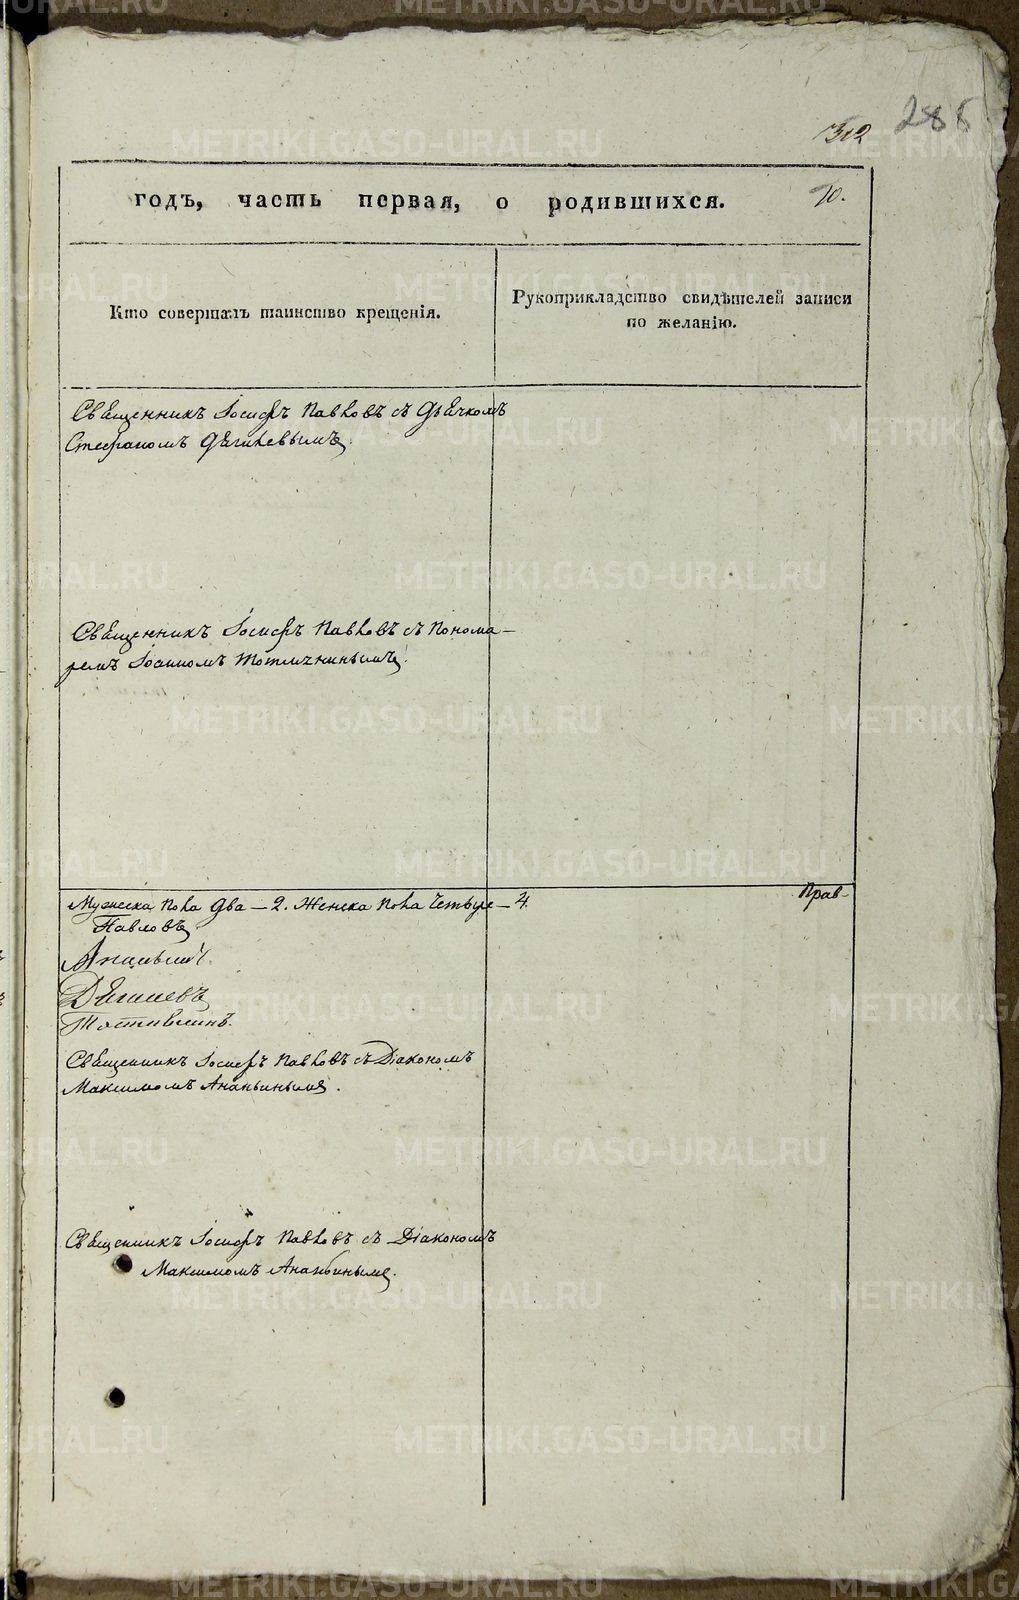 312
годъ, часть первая, о родившихся.
Кто совершалъ таинство крещенія.
Рукоприкладство свидѣтелей записи
по желанію.
Священникъ Іосифъ Павловъ съ Дьячкомъ
Стефаномъ
Священникъ Іосифъ Павловъ съ Понома-
ремъ Іоанномъ
Мужеска пола Два – 2. Женска пола Четыре – 4.
Прав-
Павловъ
Священникъ Іосифъ Павловъ съ Діакономъ
Максимомъ Ананьинымъ.
Священникъ Іосифъ Павловъ съ Діакономъ
Максимомъ Ананьинымъ.
METRIKI.GASO-URAL.RU